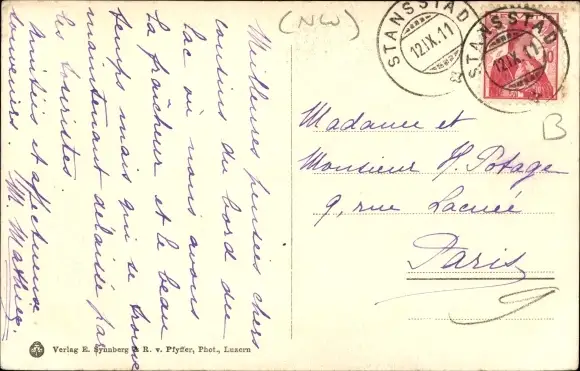 (NW)
STANSSTAD
12.IX.11
STANSSTAD
12.IX.11
B
Meilleures pensées chers
cousins du bord du
lac où nous avons
la fraîcheur et le beau
temps mais qui se trouve
maintenant délaissé par
les touristes.
Amitiés et affectueux
souvenirs. M. Mathieu
Madame et
Monsieur H. Potage
9, rue Lacuée
Paris
Verlag E. Synnberg & R. v. Pfyffer, Phot., Luzern